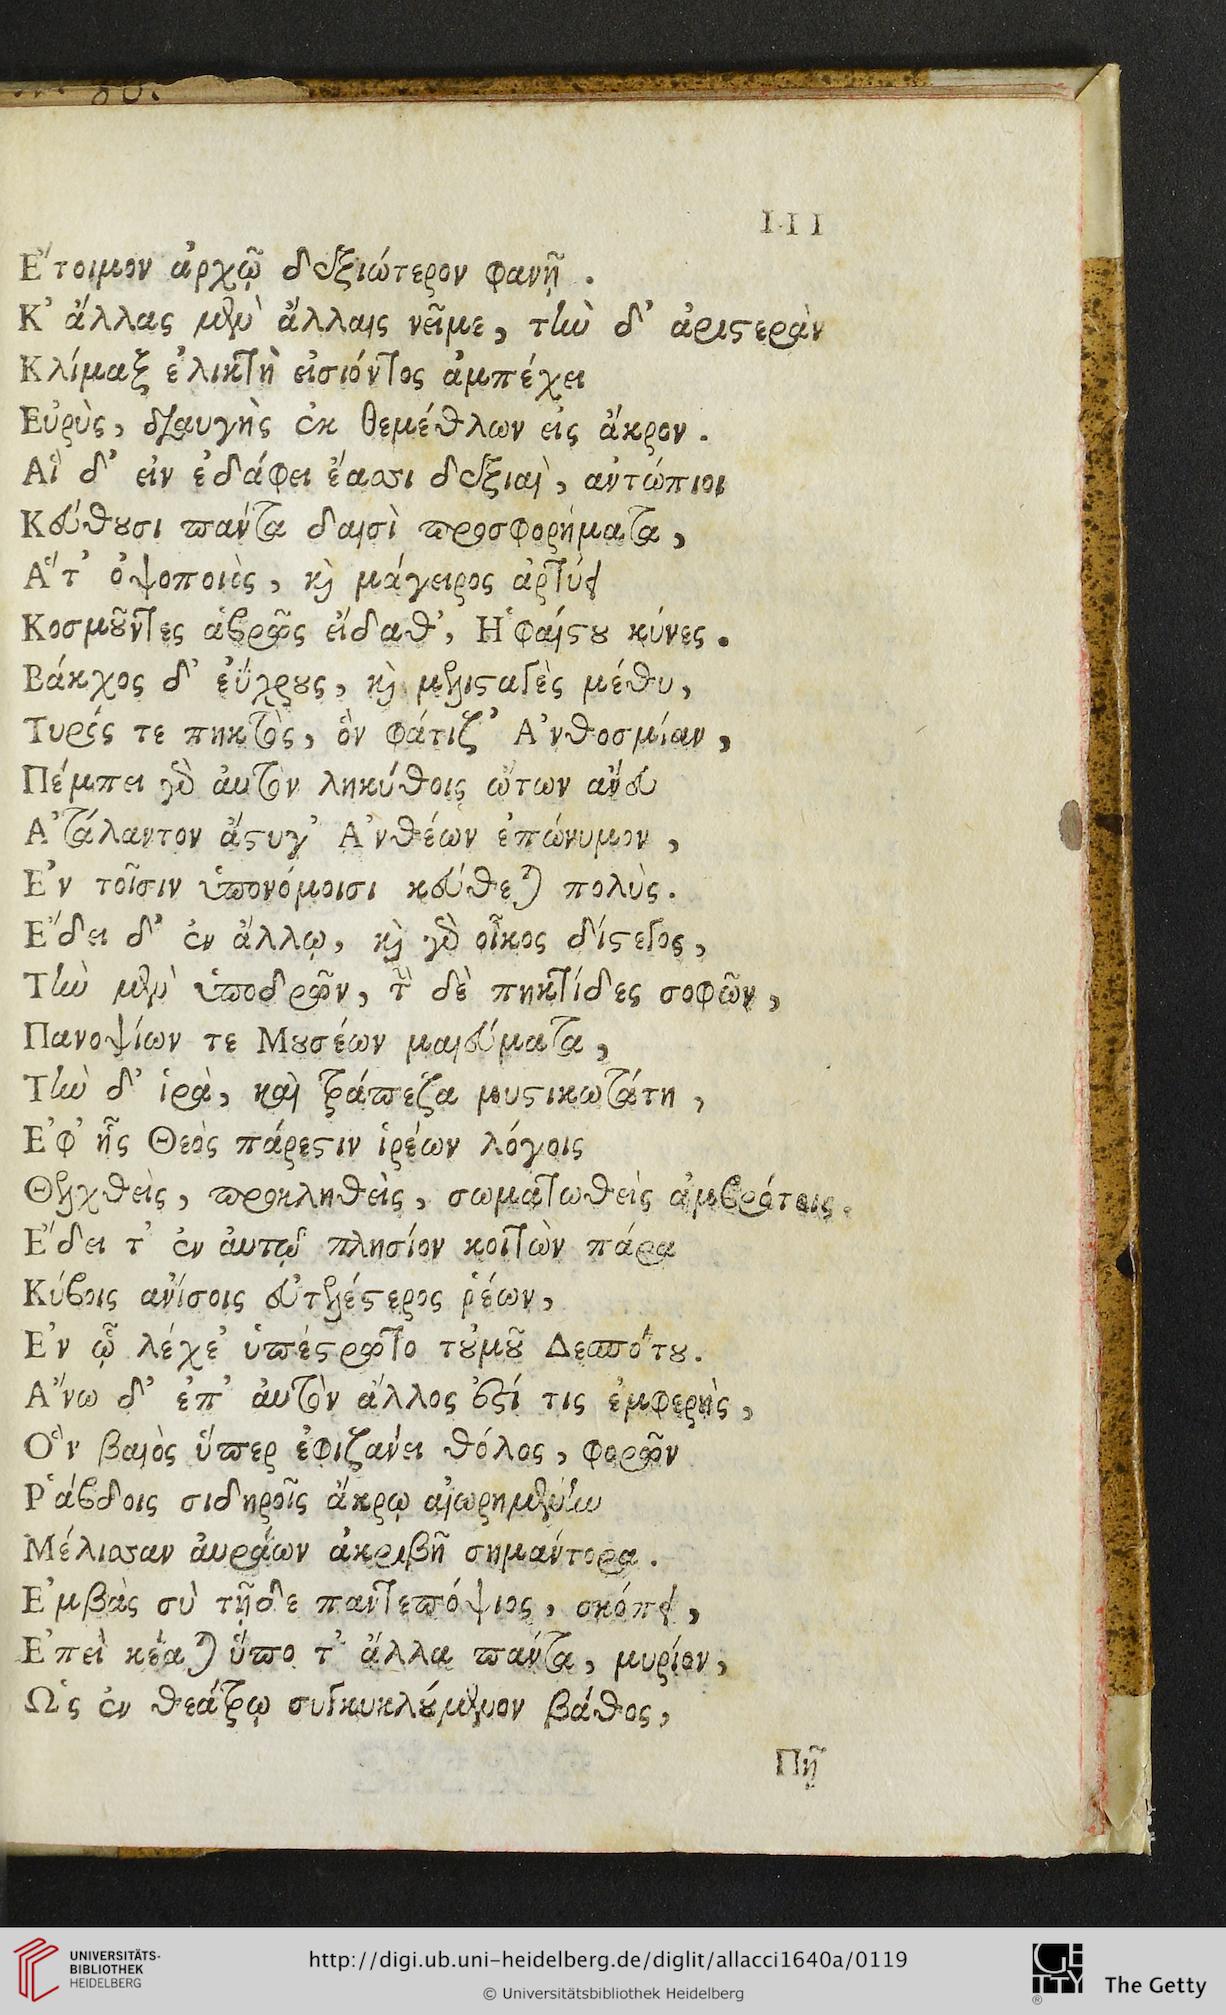 111
Ἕτοιμον ἀρχῷ δεξιώτερον φανῇ.
Κ' ἄλλας μὲν ἄλλαις νεῖμε, τὴν δ' ἀριστερὰν
Κλίμαξ ἑλικτὴ εἰσιόντος ἀμπέχει
Εὐρὺς, διαυγὴς ἐκ θεμέθλων εἰς ἄκρον.
Αἳ δ' εἰν ἐδάφει ἔασσι δεξιαὶ, αὐτώπιοι
Κεύθουσι πάντα δαισὶ προσφορήματα,
Ἅτ' ὀψοποιὸς, καὶ μάγειρος ἀρτύει
Κοσμοῦντες ἁβρῶς εἴδαθ', Ἡφαίστου κύνες.
Βάκχος δ' ἐΰχρους, καὶ μελισταγὲς μέθυ,
Τυρός τε πηκτὸς, ὃν φάτιζ' Ἀνθοσμίαν,
Πέμπει γὰρ αὐτὸν ληκύθοις ὤτων ἄνευ
Ἀτάλαντον ἄστυγ' Ἀνθέων ἐπώνυμον,
Ἐν τοῖσιν ὑπονόμοισι κεύθεται πολὺς.
Ἕδει δ' ἐν ἄλλῳ, καὶ γὰρ οἶκος δίστεγος,
Τὴν μὲν ὑποδρῶν, τῇ δὲ πηκτίδες σοφῶν,
Πανοψίων τε Μουσέων μαιεύματα,
Τὴν δ' ἱρὰ, καὶ τράπεζα μυστικωτάτη,
Ἐφ' ἧς Θεὸς πάρεστιν ἱρέων λόγοις
Θελχθεὶς, προκληθεὶς, σωματωθεὶς ἀμβρότοις.
Ἕδει τ' ἐν αὐτῷ πλησίον κοιτὼν πάρα
Κύβοις ἀνίσοις εὐτελέστερος ῥέων,
Ἐν ᾧ λέχε' ὑπέστρωτο τοὐμοῦ Δεσπότου.
Ἄνω δ' ἐπ' αὐτὸν ἄλλος ἐστί τις ἐμφερὴς,
Ὃν βαιὸς ὕπερ ἐφιζάνει θόλος, φορῶν
Ῥάβδοις σιδηροῖς ἄκρῳ αἰωρημένην
Μέλισσαν αὐράων ἀκριβῆ σημάντορα.
Ἐμβὰς σὺ τῇδε παντεπόψιος, σκόπει,
Ἐπεὶ κέαται ὕπο τ' ἄλλα πάντα, μυρίον,
Ὡς ἐν θεάτρῳ συγκυκλούμενον βάθος,
Πῇ
UNIVERSITÄTS-
BIBLIOTHEK
HEIDELBERG
http://digi.ub.uni-heidelberg.de/diglit/allacci1640a/0119
© Universitätsbibliothek Heidelberg
GETTY
The Getty